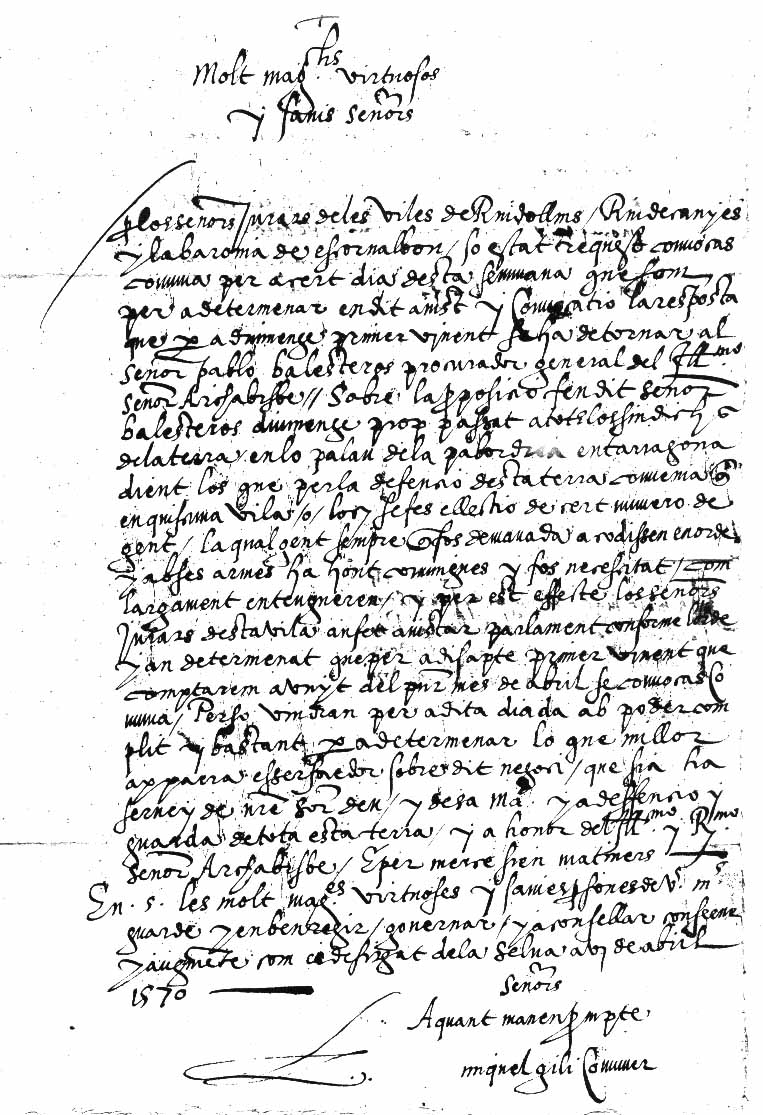 Molt mag.chs virtuosos
y savis señors
p los señors Jurats de les viles de Riudollms / Riudecanyes
y la baronia de escornalbou / so estat request convocas
comuna per a cert dia desta semmana que fom
per a determenar en dit aiust y Convocatio la resposta
que per a diumenge primer vinent se ha de tornar al
señor pablo balesteros procurador general del Ill.mo
señor Archabisbe // Sobre la pposicio feu dit señor
balesteros diumenge prop passat a tots los sindichs
de la terra / en lo palau de la pabordria en tarragona
dient los que per la defencio desta terra convenia q
en quiscuna vila / o / loch se fes ellectio de cert numero de
gent / la qual gent sempre q fos demanada acodissen en orde
y ab ses armes ha hont convingues y fos necessitat / com
largament entengueren / y per est effecte los señors
Jurats desta vila an fet aiustar parlament conforme
y an determenat que per a disapte primer vinent que
comptarem a vuyt del pnt mes de abril se convocas Co
muna / Perso vindran per a dita diada ab poder com
plit y bastant per a determenar lo que millor
appaera esser faedor sobre dit negoci / que sia ha
servey de nre sor deu / y de sa Mat. y a deffencio y
guarda de tota esta terra / y a honor del Ill.mo y R.mo
señor Archabisbe / E per merce sien matiners
En. s. les molt mag.es virtuoses y savies psones de v. m.s
guarde y en ben regir / governar / y aconsellar conserve
y augmente com es desijat de la Selva a vj de abril
1570
señors
A quant manen prompte
miquel gili Comuner